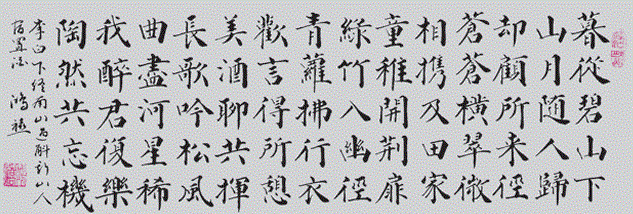 暮從碧山下
山月随人歸
却顧所来徑
蒼蒼横翠微
相携及田家
童稚開荆扉
綠竹入幽徑
青蘿拂行衣
歡言得所憩
美酒聊共揮
長歌吟松風
曲盡河星稀
我醉君復樂
陶然共忘機
李白下終南山過斛斯山人
宿置酒 鴻